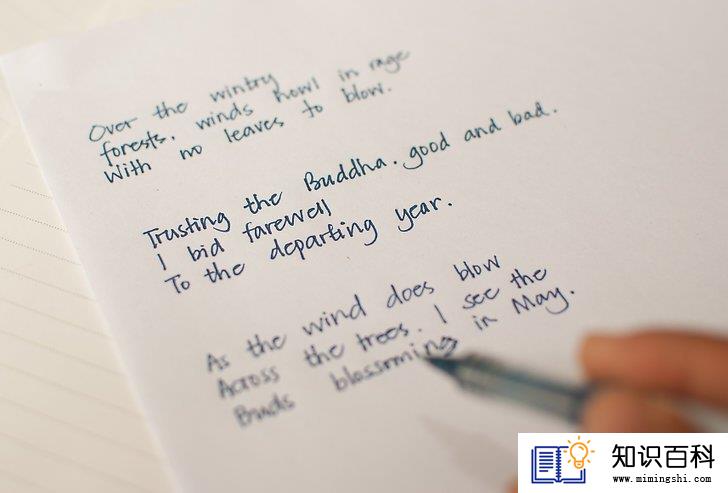 Over the wintry
forests. winds howl in rage
With no leaves to blow.
Trusting the Buddha. good and bad.
I bid farewell
To the departing year.
As the wind does blow
Across the trees. I see the
Buds blossoming in May.
知识百科
www.mimingshi.com